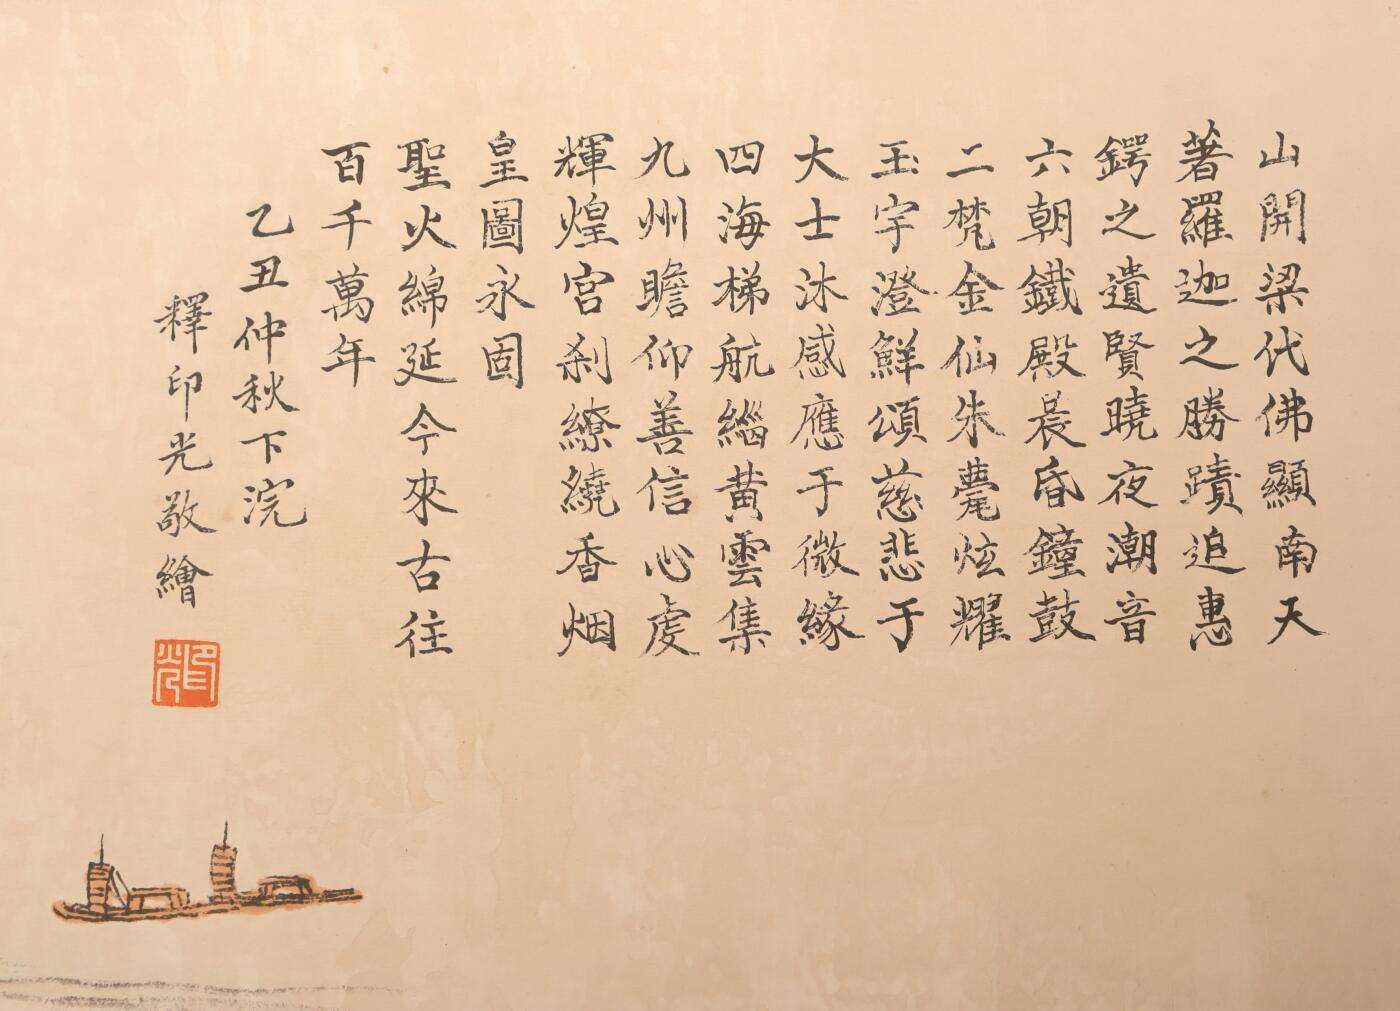 山開梁代佛顯南天
著羅迦之勝蹟追惠
鍔之遺賢曉夜潮音
六朝鐵殿晨昏鐘鼓
二梵金仙朱甍炫耀
玉宇澄鮮頌慈悲于
大士沐感應于微緣
四海梯航緇黄雲集
九州瞻仰善信心虔
輝煌宮刹繚繞香烟
皇圖永固
聖火綿延今來古往
百千萬年
乙丑仲秋下浣
釋印光敬繪
印光